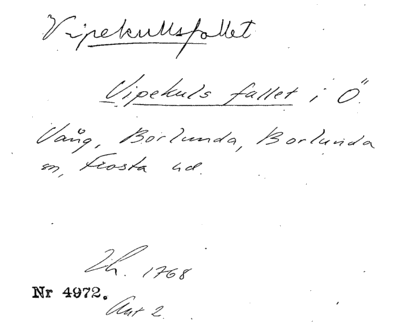 Vipekullsfallet
Vipekuls fallet i Ö.
Vång, Borlunda, Borlunda
sn, Frosta hd.
Lh. 1768
Nr 4972.
Akt 2.